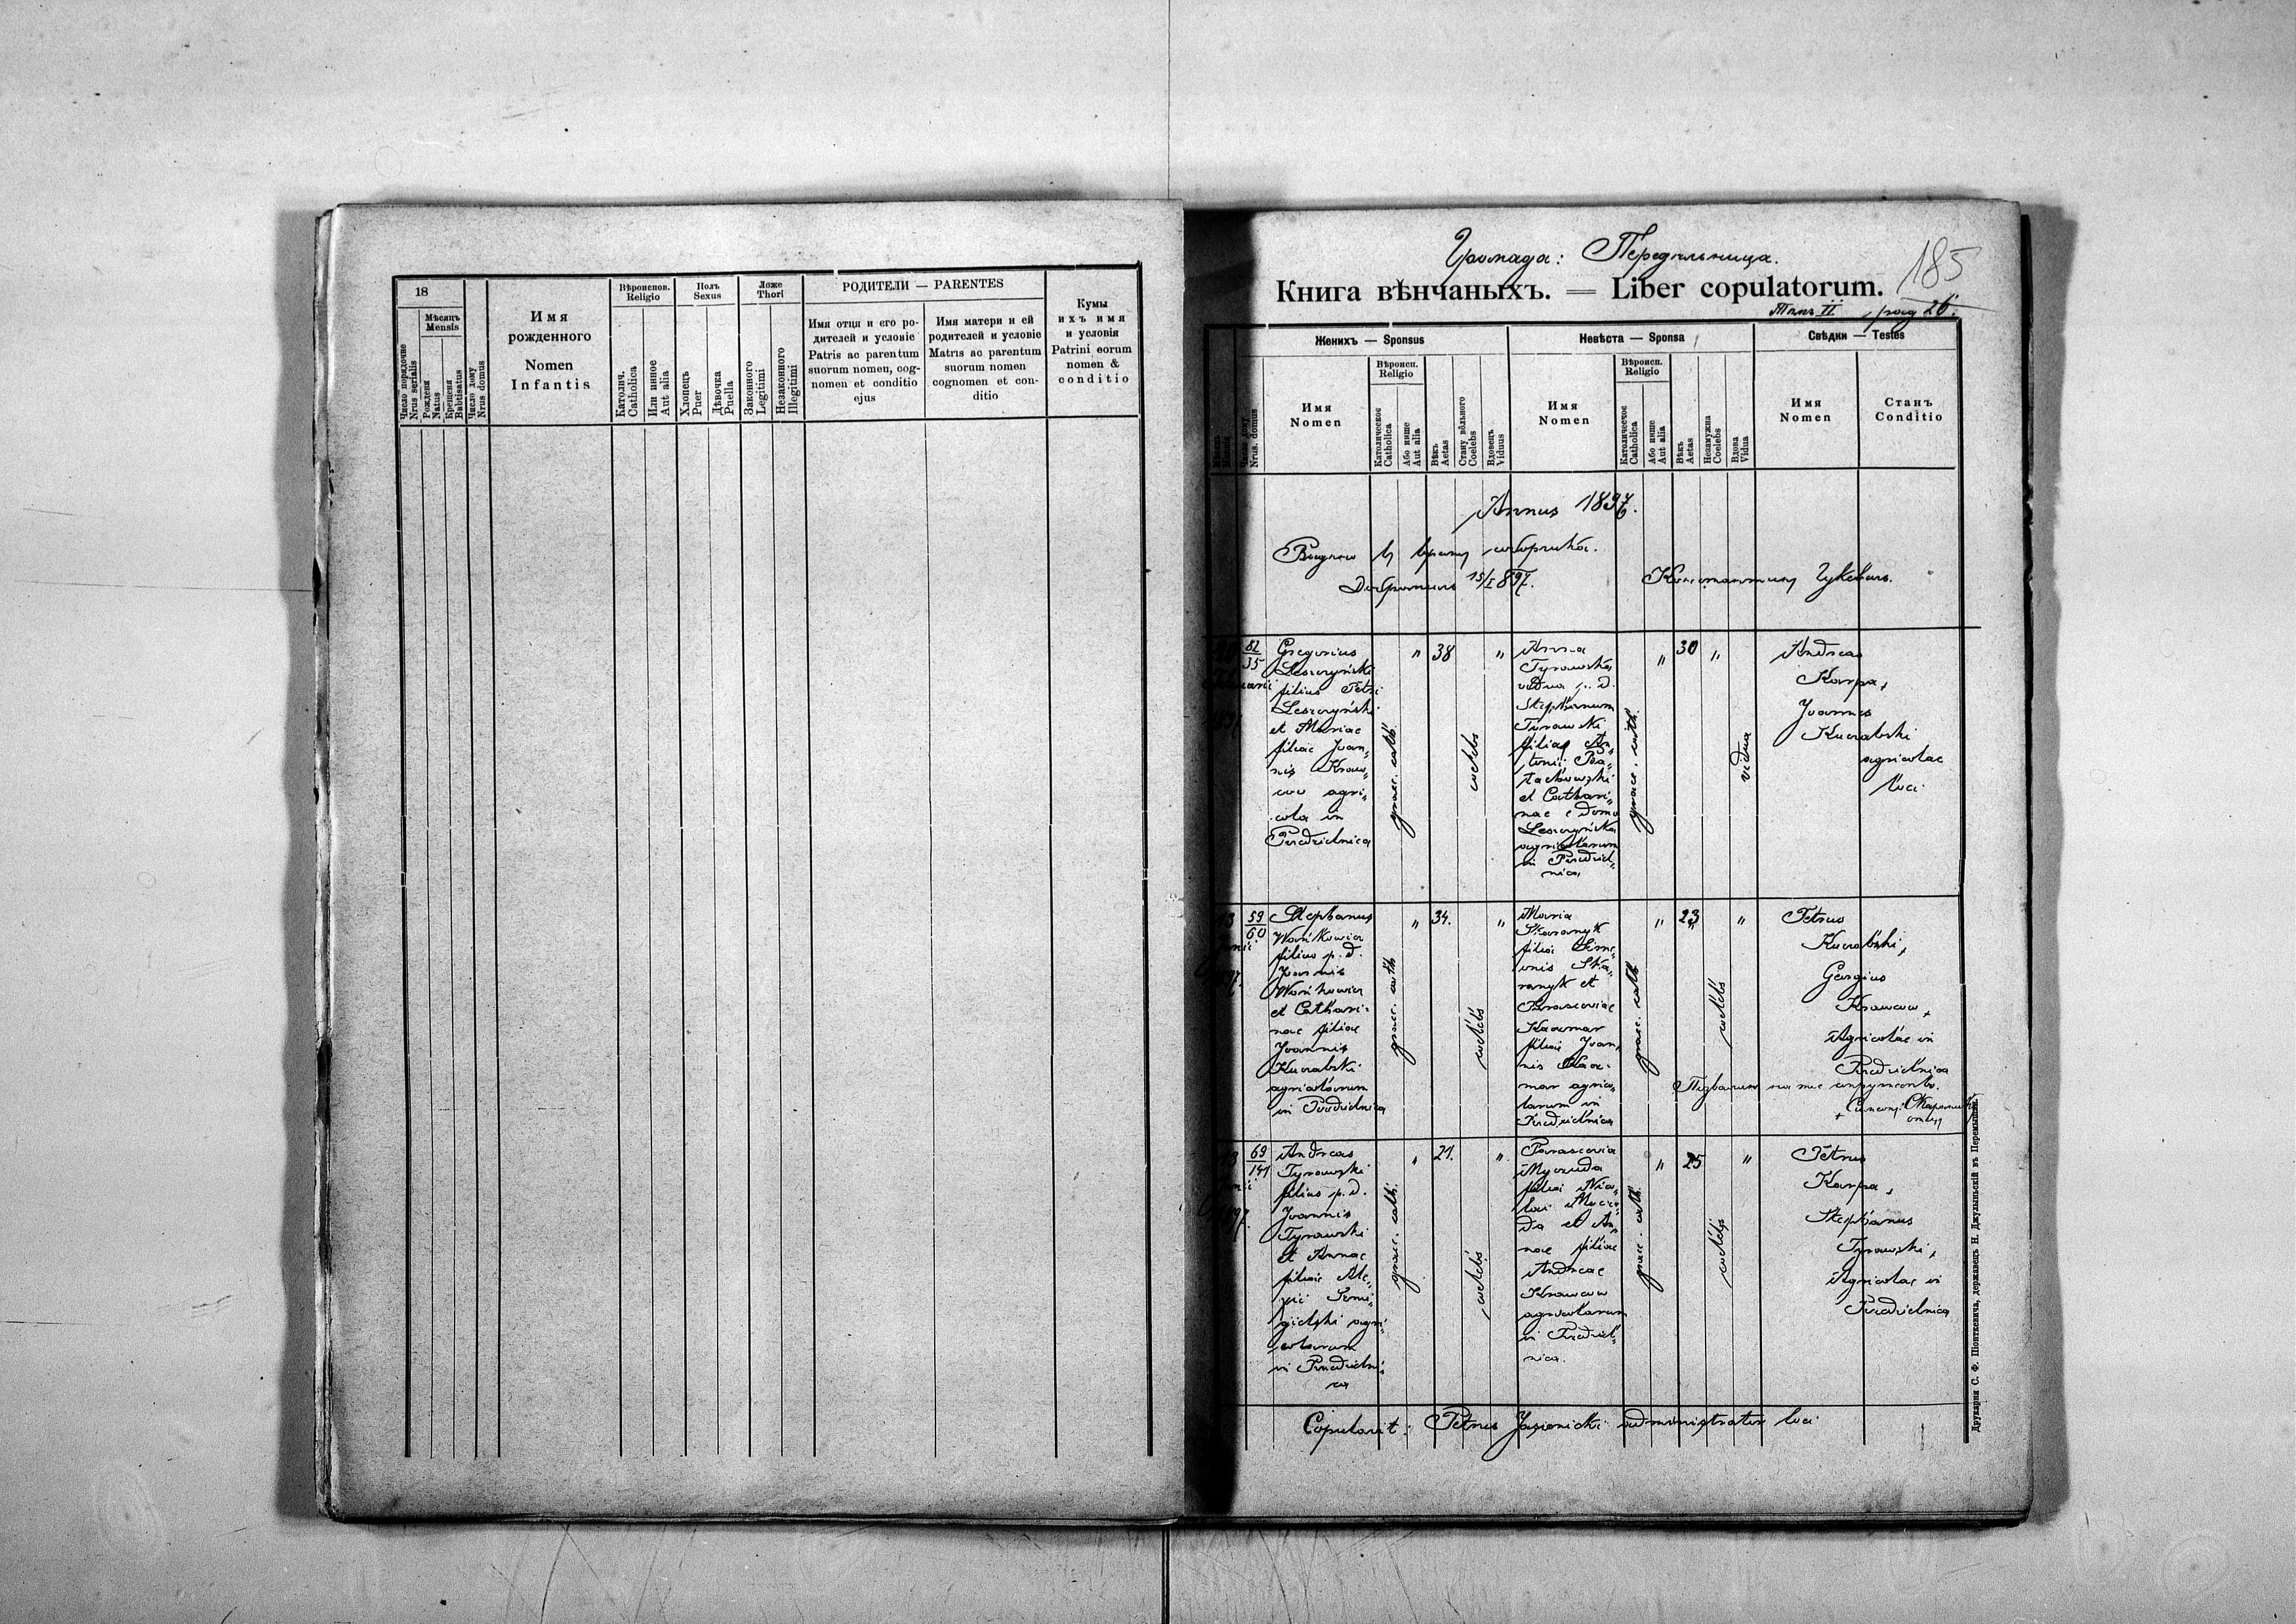 18
Мѣсяць
Mensis
Число порядочне
Nrus serialis
Рожденя
Natus
Крещеня
Babtisatus
Число дому
Nrus domus
Имя
рожденного
Nomen
Infantis
Вѣроиспов.
Religio
Католич.
Catholica
Или инное
Aut alia
Полъ
Sexus
Хлопець
Puer
Дѣвочка
Puella
Ложе
Thori
Законного
Legitimi
Незаконного
Illegitimi
РОДИТЕЛИ — PARENTES
Имя отця и его ро-
дителей и условіе
Patris ac parentum
suorum nomen, cog-
nomen et conditio
ejus
Имя матери и ей
родителей и условіе
Matris ac parentum
suorum nomen
cognomen et con-
ditio
Кумы
ихъ имя
и условія
Patrini eorum
nomen &
conditio
Громада: Передѣльница.
185
Книга вѣнчаныхъ. — Liber copulatorum.
Томъ II.
Женихъ — Sponsus
Невѣста — Sponsa
Свѣдки — Testes
Mensis
Число дому
Nrus. domus
Имя
Nomen
Вѣроисп.
Religio
Католическое
Catholica
Або инше
Aut alia
Вѣкъ
Aetas
Стану вôльного
Coelebs
Вдовець
Viduus
Имя
Nomen
Вѣроисп.
Religio
Католическое
Catholica
Або инше
Aut alia
Вѣкъ
Aetas
Незамужна
Coelebs
Вдова
Vidua
Имя
Nomen
Станъ
Conditio
Annus 1897.
15/I 897.
82
35
Gregorius
Leszczyński
filius Petri
Leszczyński
et Mariae
filiae Joan„
nis Kraw„
cow agri„
cola in
Predzielnica
graec. cath.
„ 38
coelebs
„
Anna
Tyrawska
vidua p. d.
Stephanum
Tyrawski
filia An„
tonii
et Cathari„
nae e domo
Leszczyńska
agricolarum
in Predziel„
nica
graec. cath.
„ 30 „
vidua
Andreas
Karpa,
Joannes
agricolae
loci
13
Junii
897.
59
60
Stephanus
filius p. d.
Joannis
et Cathari„
nae filiae
Joannis
agricolarum
in Predzielnica
graec. cath
„ 34.
coelebs
„
Maria
Skaranyk
filia Sime„
onis Ska„
ranyk et
Parasceviae
Kaczmar
filiae Joan„
nis Kacz„
mar agrico„
larum in
Predzielnica
graec. cath
„ 23
coelebs
„
Petrus
Georgius
Krawcow,
Agricolae in
Predzielnica
13
Junii
1897.
69
141
Andreas
Tyrawski
filius p. d.
Joannis
Tyrawski
et Annae
filiae Ale„
agri„
colarum
in Predzielni„
ca
graec. cath.
„ 21.
coelebs
„
Parascevia
filia Nico„
lai
da et An„
nae filiae
Andreae
Krawcow
agricolarum
in Predziel„
nica.
graec. cath.
„ 25
coelebs
„
Petrus
Karpa,
Stephanus
Tyrawski,
Agricolae in
Predzielnica
Copulavit: Petrus Jasienicki administrator loci
Друкарня С. Ф. Піонткевича, державець Н. Джулыньскій въ Перемышли.